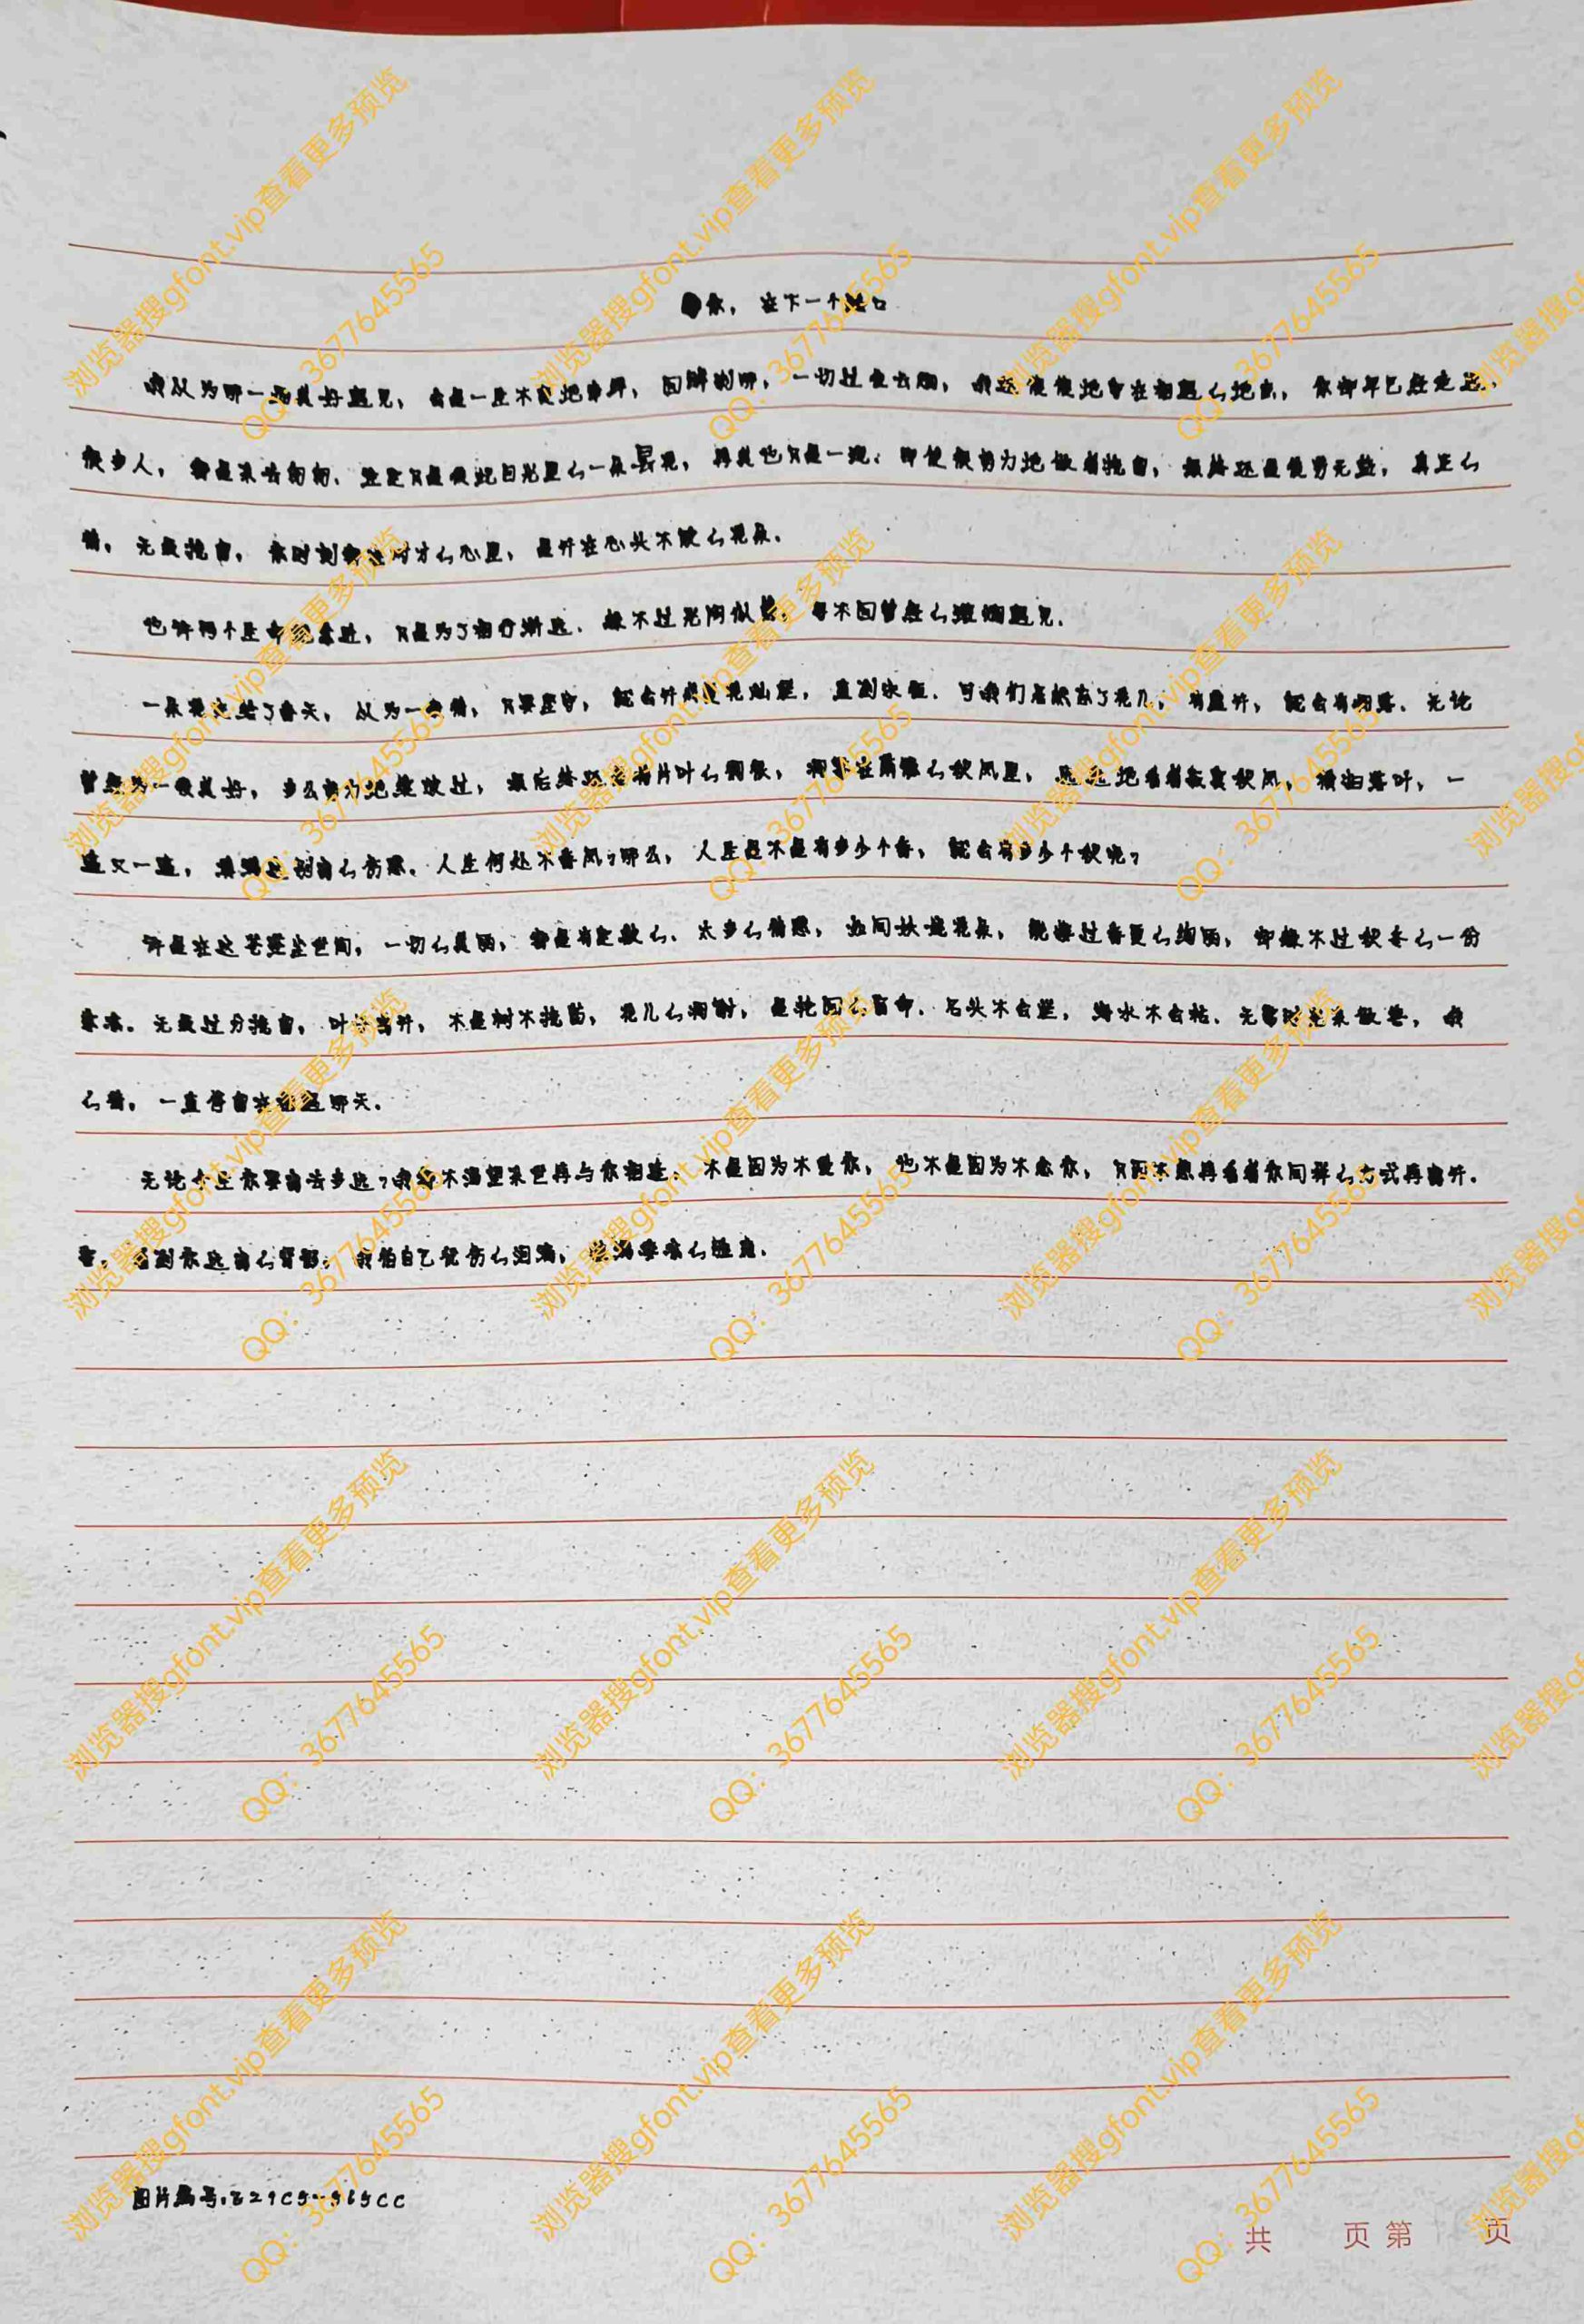 你，在下一个路口
我以为那一场美好遇见，会是一生不变地，回眸刹那，一切过往云烟，我还傻傻地留在相遇的地点，你却早已经走远。
很多人，都是来去匆匆，注定只是彼此目光里的一朵昙花，再美也只是一现。即使很努力地做着挽留，最终还是徒劳无益，真正的
情，无须挽留，你时刻都在对方的心里，是开在心头不败的花朵。
也许两个生命的靠近，只是为了相行渐远，敌不过光阴似箭，留不回曾经的灿烂遇见。
一朵花送给了春天，以为一些情，只要坚守，就会开成繁花灿烂，直到永恒。可我们忘却了花儿，有盛开，就会有凋落。无论
曾经多么美好，多么努力地绽放过，最后终还是有片叶的飘散，凋零在萧条的秋风里，远远地看着寂寞秋风，横扫落叶，一
遍又一遍，的伤感。人生何处不春风？那么，人生是不是有多少个春，就会有多少个秋呢？
许是在这苍茫尘世间，一切的美丽，都是有定数的。太多的情感，如同妖娆花朵，能撑过春夏的绚丽，却敌不过秋冬的一份
寒凉。无须过分挽留，叶的离开，不是树不挽留，花儿的凋谢，是轮回的宿命。石头不会烂，海水不会枯，无需时光来做誓，我
的情，一直停留在相遇那天。
无论今生你要离去多远？我终不渴望来世再与你相逢。不是因为不爱你，也不是因为不念你，只因不想再看着你同样的方式再离开。
看到你远离的背影，我怕自己忧伤的泪滴，的。
图片编号:
共 页 第 页
浏览器搜gfont.vip查看更多预览
QQ：3677645565